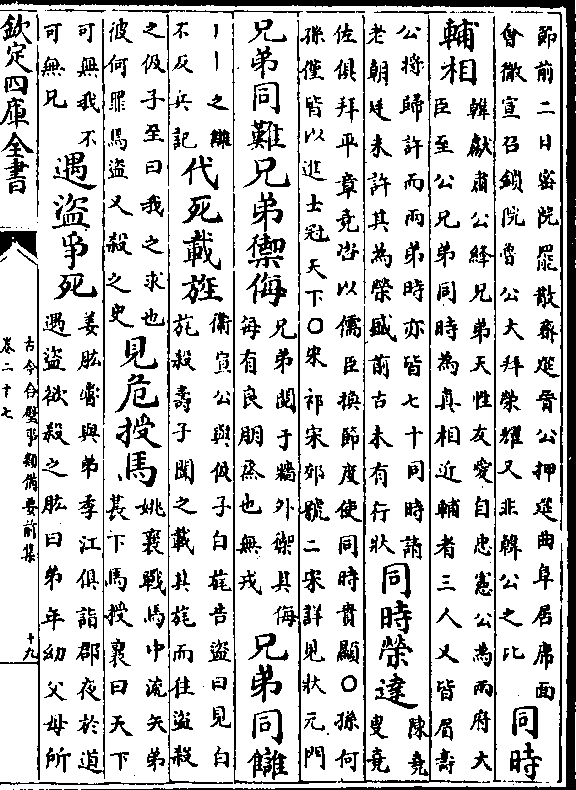 節前二日宻院罷散齋筵晉公押筵曲阜居席面
會徹宣召鎖院魯公大拜榮耀又非韓公之比
同時
輔相
韓獻肅公絳兄弟天性友愛自忠憲公為兩府大
臣至公兄弟同時為真相近輔者三人又皆眉壽
公將歸許而兩弟時亦皆七十同時請
老朝廷未許其為榮盛前古未有行狀
同時榮達
陳堯
叟堯
佐俱拜平章堯咨以儒臣換節度使同時貴顯○孫何
孫僅皆以進士冠天下○宋祁宋郊號二宋詳見狀元門
兄弟同難
兄弟禦侮
兄弟鬩于牆外禦其侮
每有良朋烝也無戎
兄弟同讎
丨丨之讎
不反兵記
代死載旌
衛宣公與伋子白旄告盜曰見白
旄殺壽子聞之載其旄而往盜殺
之伋子至曰我之求也
彼何罪焉盜又殺之史
見危授馬
姚襄戰馬中流矢弟
萇下馬授襄曰天下
可無我不
可無兄
遇盜爭死
姜肱嘗與弟季江俱詣郡夜於道
遇盜欲殺之肱曰弟年幼父母所
欽定四庫全書
古今合璧事類備要前集
卷二十七
十九